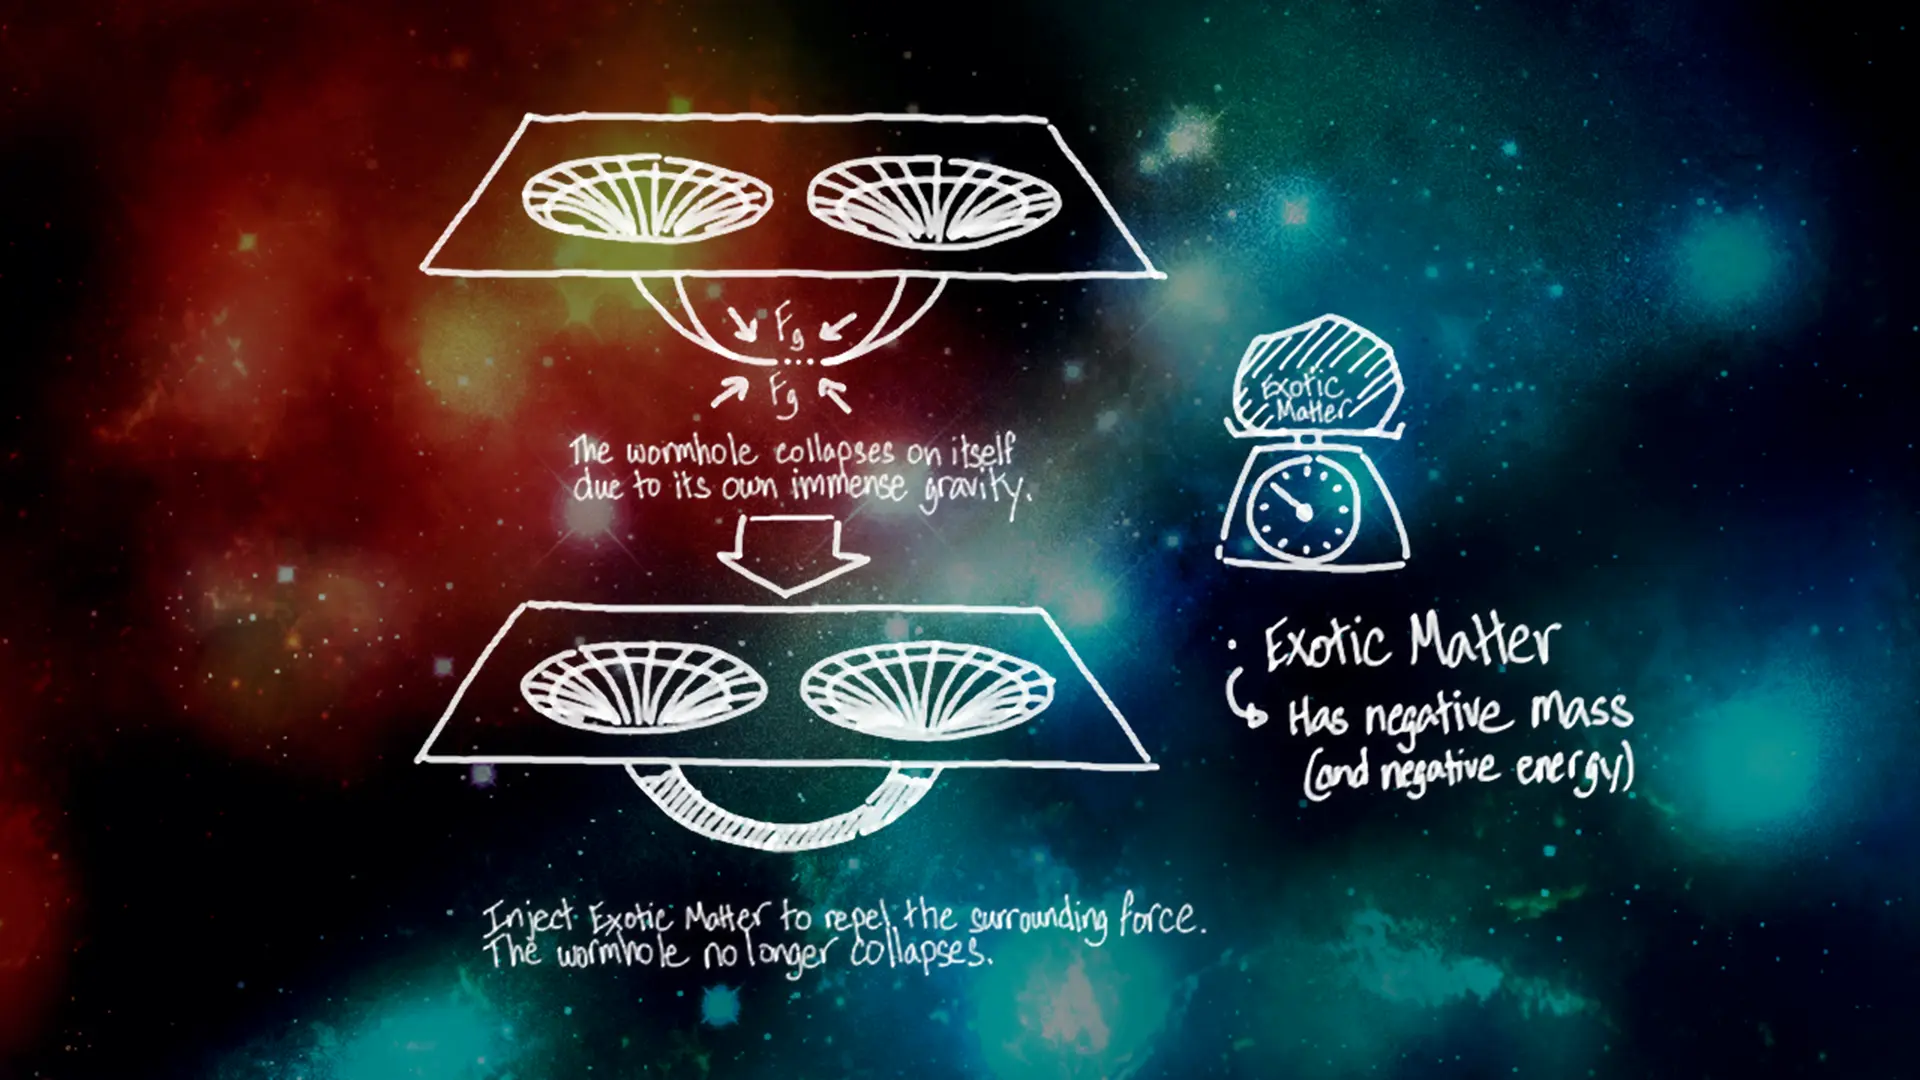 Fg
Fg
The wormhole collapses on itself
due to its own immense gravity.
Inject Exotic Matter to repel the surrounding force.
The wormhole no longer collapses.
Exotic
Matter
· Exotic Matter
Has negative mass
(and negative energy)